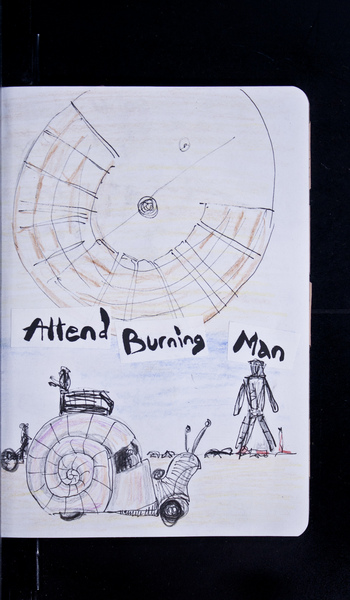 Attend Burning Man